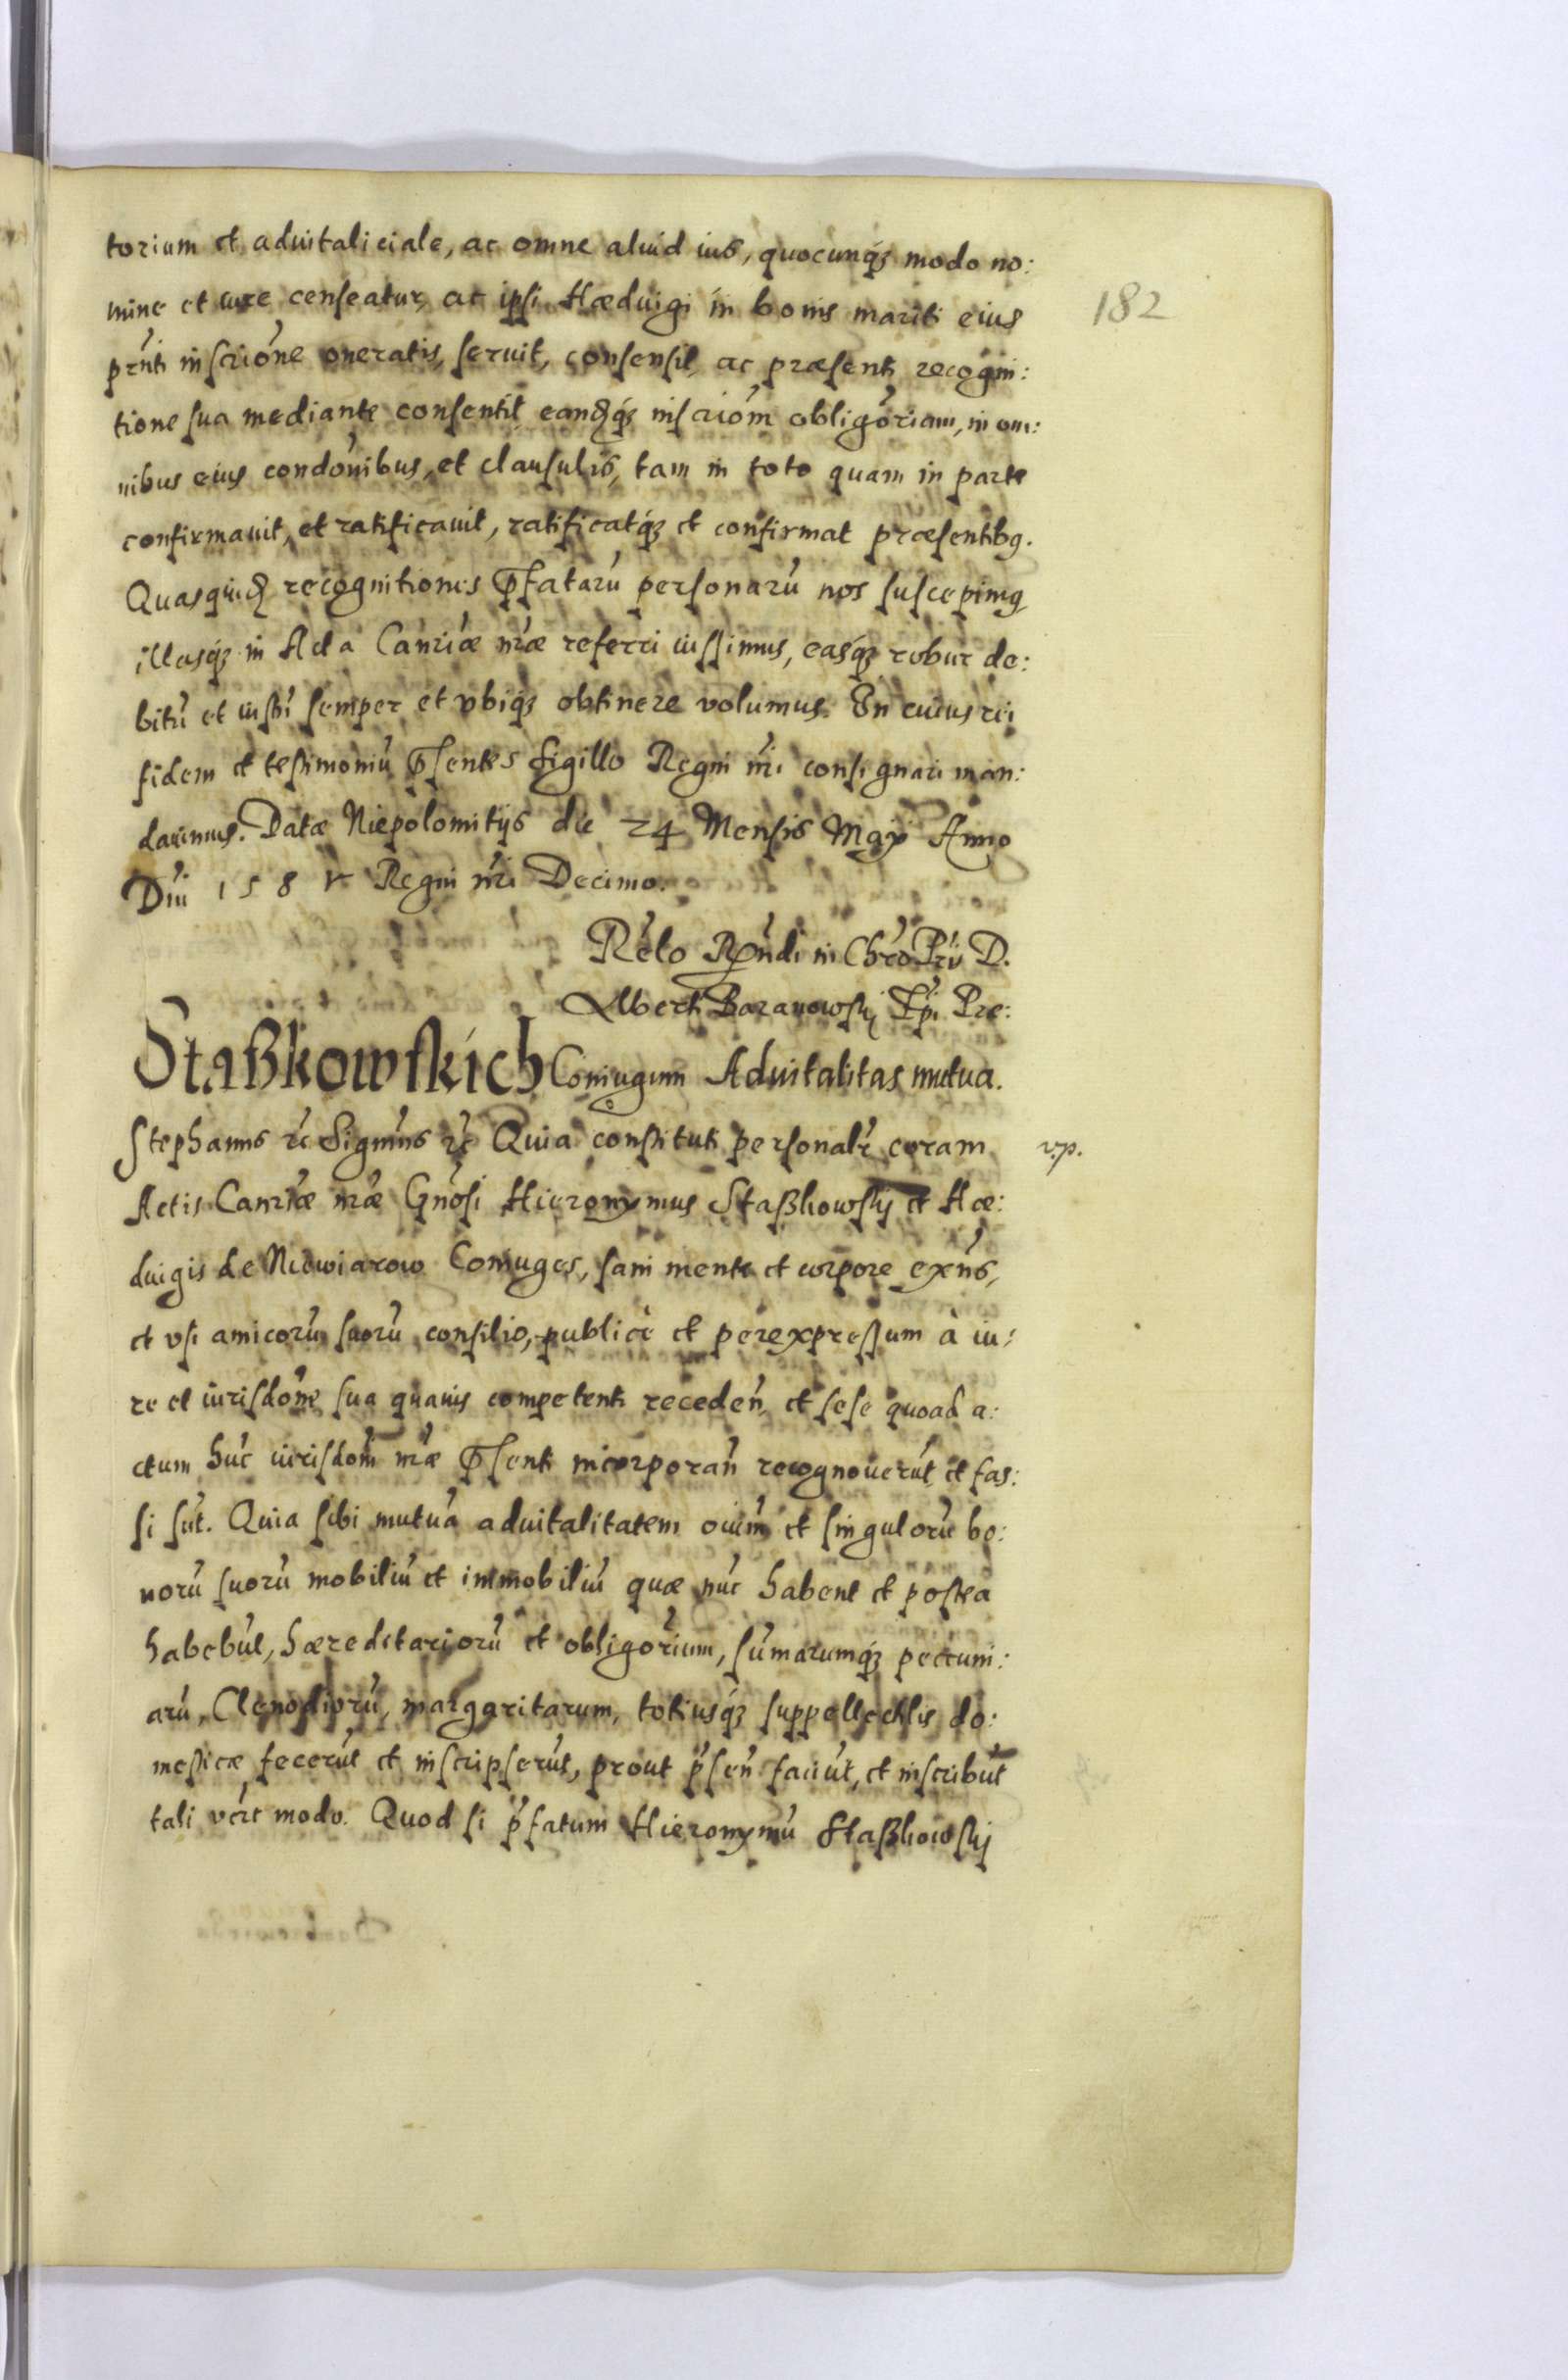 torium et aduitaliciale, ac omne aliud ius, quocunq́ꝫ modo no:
182
mine et iure censeatur, ac ipsi Hæduigi in bonis mariti eius
prn̄ti inscriōne oneratis, seruit, consensit, ac præsenti recogni:
tione sua mediante consentit, eandq́ꝫ inscriōm obligōriam, in om:
nibus eius condōnibus, et clausulis, tam in toto quam in parte
confirmauit, et ratificauit, ratificatq́ꝫ et confirmat præsentibꝰ.
Quasquid recognitiones p̄fatarū personarū nos suscepimꝰ
illasq́ꝫ in Acta Canr̄iæ nr̄æ referri iussimus, easq́ꝫ robur de:
bitū et iustū semper et vbiq́ꝫ obtinere volumus. In cuius rei
fidem et testimoniū p̄sentes Sigillo Regni nr̄i consignari man:
dauimus. Datæ Niepolomitijs die 24 Mensis Maij Anno
Dn̄i 158 Regni nr̄i Decimo.
Rēlo Rn̄di in Chrō Pr̄is D.
Alberti Baranowskį Ep̄i Pre:
Staßkowskich Coniugum Aduitalitas mutua.
Stephanus ꝛc Signm̄us ꝛc Quia constituti personalr̄ coram
v.p.
Actis Canr̄iæ nr̄æ Gn̄osi Hieronymus Staßkowskj et Hæ:
duigis de Niewiarow Coniuges, sani mente et corpore exn̄s,
et vsi amicorū suorū consilio, publicè et per expressum à iu:
re et iurisdōne sua quauis competenti receden̄, et sese quoad a:
ctum hūc iurisdōni nr̄æ p̄senti incorporan̄ recognouerūt et fas:
si sūt. Quia sibi mutuā aduitalitatem oīum et singulorū bo:
norū suorū mobiliū et immobiliū quæ nūc habent et postea
habebūt, hæreditariorū et obligōrium, sūmarumq́ꝫ pecuni:
arū, Clenodiorū, margaritarum, totiusq́ꝫ suppellectilis do:
mesticæ fecerūt et inscripserūt, prout p̄sen̄ faciūt, et inscribūt
tali vērt modo. Quod si p̄fatum Hieronymū Staßkowskj